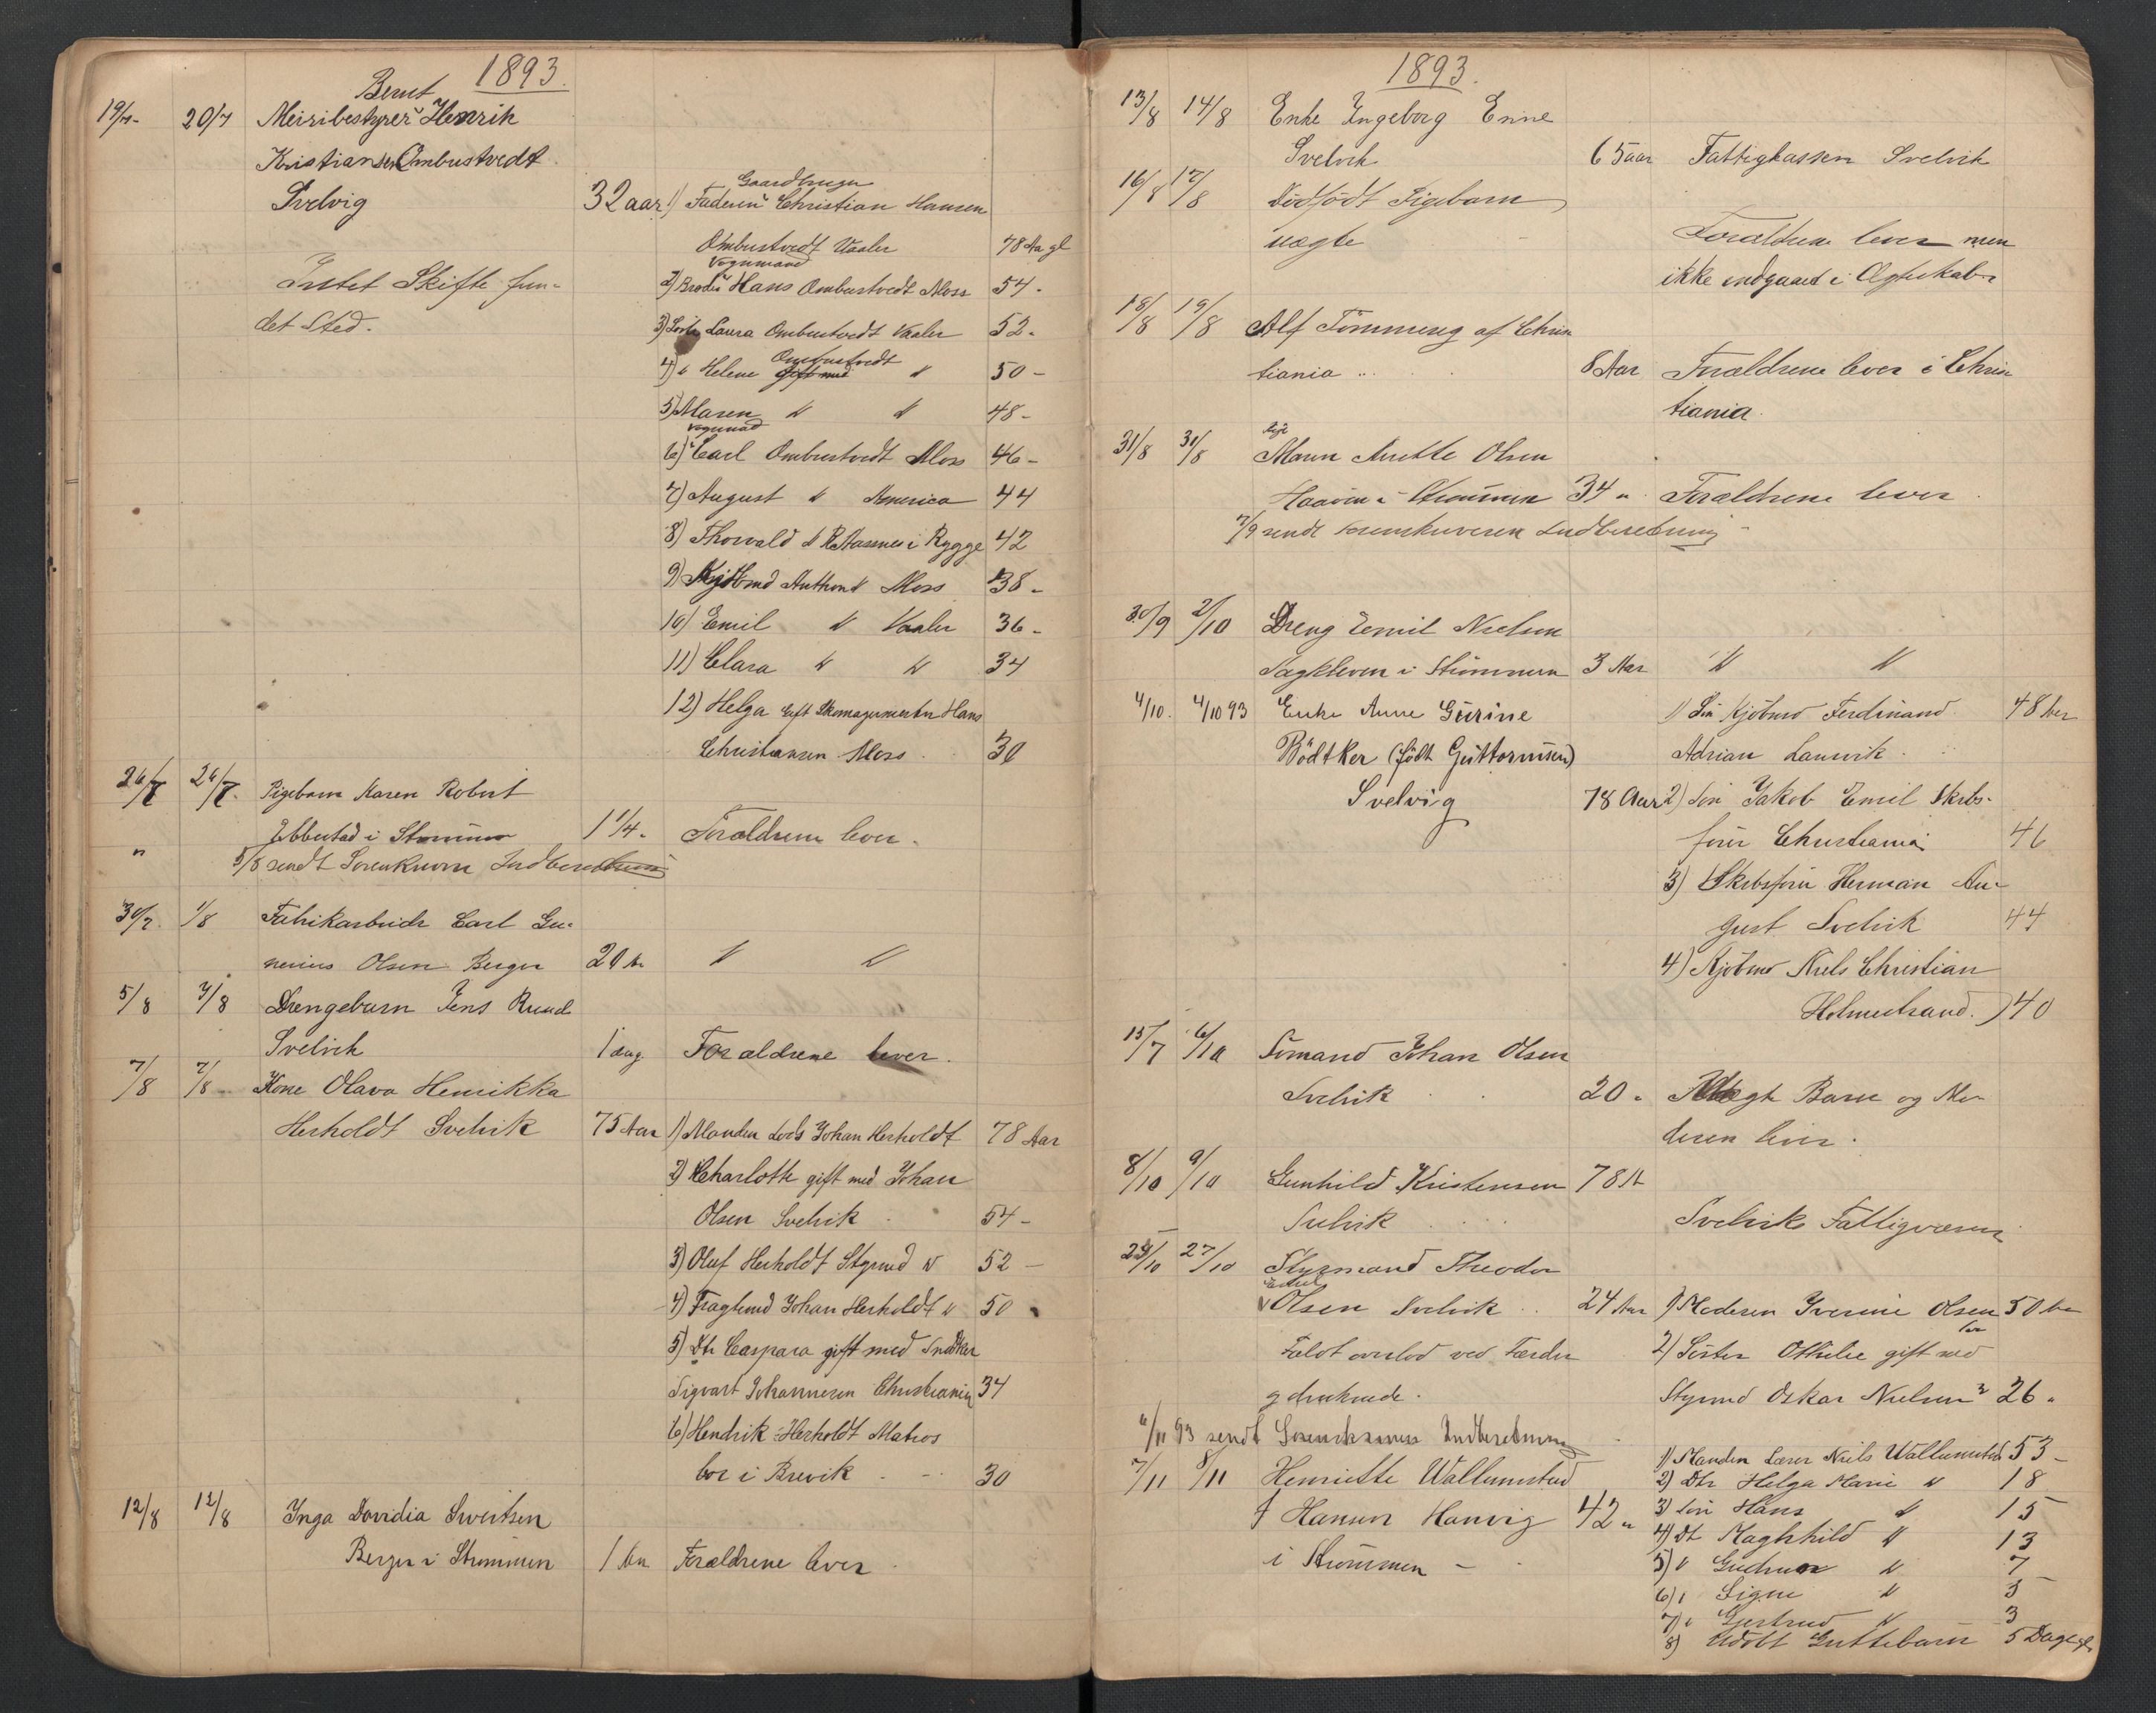 1893.
Bernt
19/7- 20/7 Meiribestyrer Henrik
Kristiansen Ombustvedt
Gaardbruger
Svelvig 32 aar 1) Faderen Christian Hansen
Ombustvedt Vaaler 78 Aa gl
Vognmand
Intet Skifte fun- 2) Broder Hans Ombustvedt Moss 54-
det Sted. 3) Søster Laura Ombustvedt Vaaler 52-
Ombustvedt
4) " Helene gift med " 50-
5) Maren " " 48-
Vognmand
6) Carl Ombustvedt Moss 46-
7) August " America 44
8) Thorvald " i Rygge 42
9) Kjøbmd Anthon " Moss 38-
10) Emil " Vaaler 36-
11) Clara " " 34
12) Helga Gift Skomagermester Hans
Christiansen Moss 30
26/7 26/7. Pigebarn Karen Robert
Ebbestad i Strømmen 1 1/4- Forældrene lever.
" 5/8 sendt Sorenskriveren Indberetning
30/7. 1/8 Fabrikarbeider Carl Gu-
nerius Olsen Berger 20 Aa " "
5/8 7/8 Drengebarn Jens Ruud
Svelvik 1 dag Forældrene lever.
7/8 7/8- Kone Olava Henrikka
Herholdt Svelvik 75 Aar 1) Manden Lods Johan Herholdt 78 Aar
2) Charlotte gift med Johan
Olsen Svelvik 54-
3) Oluf Herholdt Styrmd " 52-
4) Fragtmd Johan Herholdt " 50
5) Dtr Caspara gift med Snedker
Sigvart Johannesen Christiania 34
6) Hendrik Herholdt Matros
bor i Brevik 30
12/8 12/8 Inga Davidia Sivertsen
Berger i Strømmen 1 Aar Forældrene lever
1893.
13/8 14/8 Enke Ingeborg Enne
Svelvik 65 aar Fattigkassen Svelvik
16/8 17/8 Dødfødt Pigebarn
uægte Forældrene lever men
ikke indgaaet i Ægteskab
18/8 19/8 Alf Tømmerng af Chris
tiania 8 Aar Forældrene lever i Chris
tiania.
31/8 31/8 Maren Anette Olsen
Haaven i Strømmen 34 " Forældrene lever
7/9 sendt Sorenskriveren Indberetning-
30/9 2/10 Dreng Emil Nielsen
Sagkleven i Strømmen 3 Aar " "
4/10. 4/10 93 Enke Anne Gurine 1) Søn Kjøbmd Ferdinand 48 Aar
Bødtker (født Guttormsen) Adrian Laurvik.
Svelvig 78 Aar 2) Søn Jakob Emil Skibs-
fører Christiania 46
3) Skibsfører Herman Au-
gust Svelvik 44
4) Kjøbmd Niels Christian
Holmestrand.) 40
15/7 6/10 Sømand Johan Olsen
Svelvik 20 " Uægte Barn og Mo-
deren lever.
8/10 9/10 Gunhild Kristensen 78 A
Svelvik Svelviks Fattigvæsen
25/10 27/10 Styrmand Theodor
Olsen Svelvik 24 Aar 1) Moderen Iverine Olsen 50 Aar
Faldt overbord ved Færder 2) Søster Othilie gift med
g druknede. Styrmd Oskar Nielsen 26 "
6/11 93 sendt Sorenskriveren Indberetning
7/11 8/11 Henriette Wallumstad 1) Manden Lærer Niels Wallumstad 53-
f Hansen Hanvig 42 " 2) Dtr Helga Marie " 18
i Strømmen - 3) Søn Hans " 15
4) Dt Maghhild " 13
5) " Gudrun " 7
6) " Signe " 5
7) " Gjertrud " 3
8) Udøbt Guttebarn 5 Dage gl